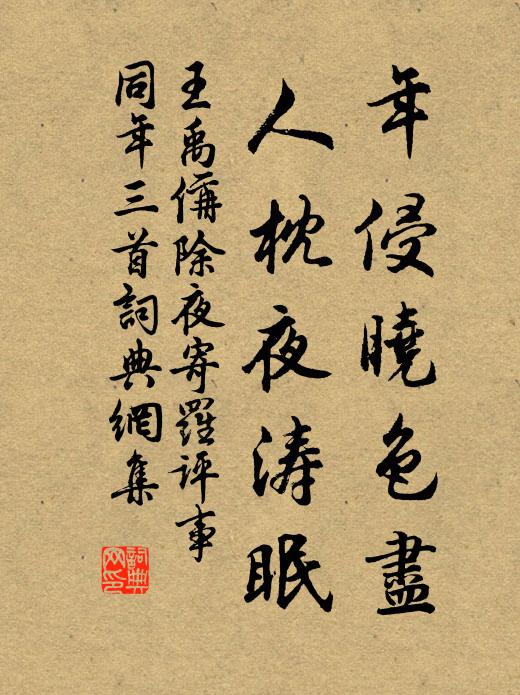 年侵曉色盡
人枕夜濤眠
王禹偁除夜寄羅評事
同年三首詞典網集
詞典網印